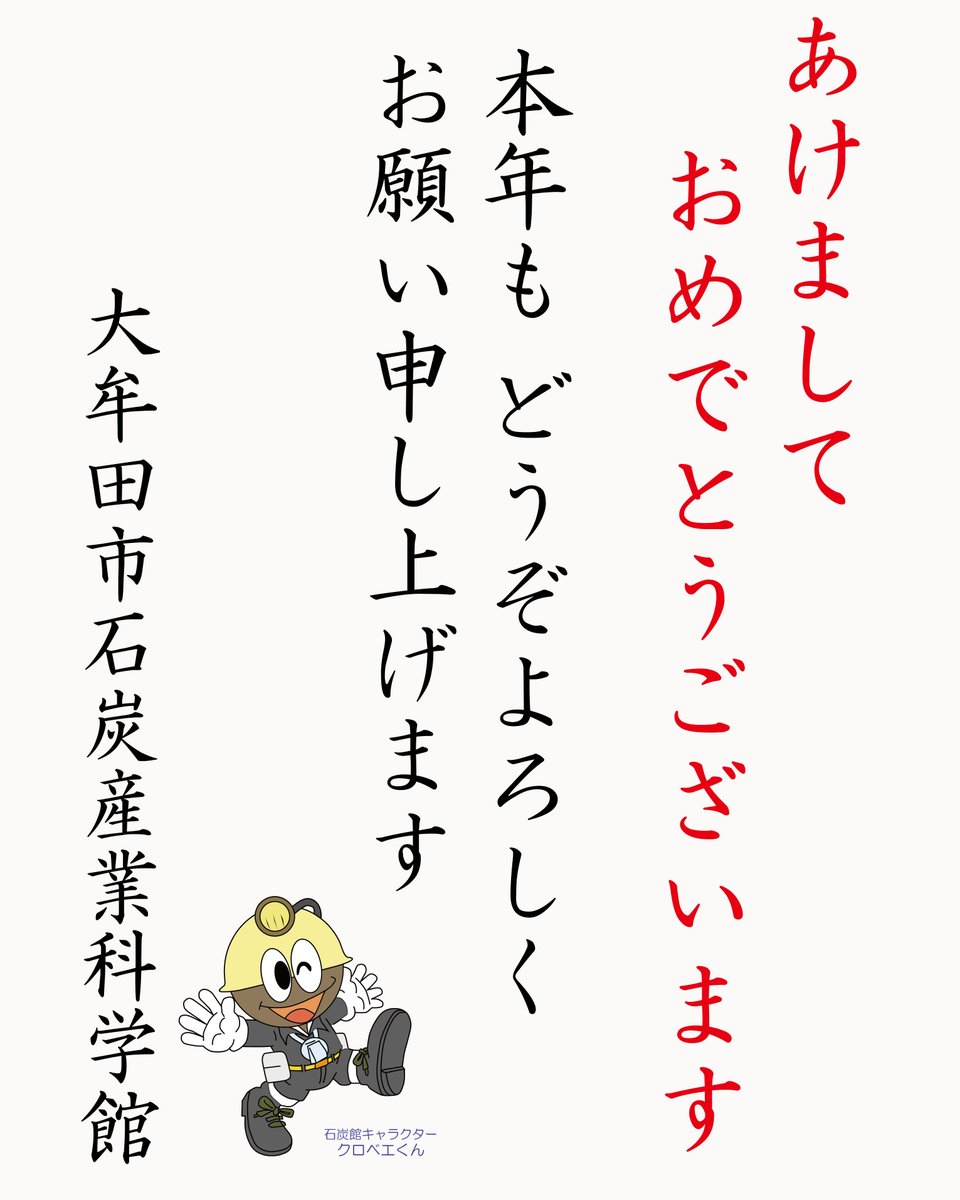 あけまして
おめでとうございます
本年も どうぞよろしく
お願い申し上げます
大牟田市石炭産業科学館
石炭館キャラクター
クロベエくん